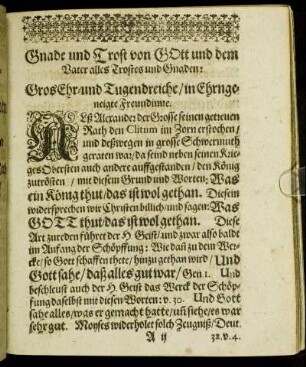 Gnade und Trost von GOtt und dem
Vater alles Trostes und Gnaden:
Gros Ehr- und Tugendreiche/ in Ehrnge-
neigte Freundinne.
ALß Alexander der Grosse seinen getreuen
Rath den Clitum im Zorn erstochen/
und deßwegen in grosse Schwermuth
geraten war/ da seind neben seinen Krie-
gesObersten auch andere auffgestanden/ den König
zutrösten/ mit diesem Grund und Worten: Was
ein König thut/ das ist wol gethan. Diesem
widersprechen wir Christen billich/ und sagen: Was
GOTT thut/ das ist wol gethan. Diese
Art zureden führet der H. Geist/ und zwar also bald
im Anfang der Schöpffung: Wie daß zu dem Wer-
cke/ so Gott schaffen thete/ hinzu gethan wird/ Und
Gott sahe/ daß alles gut war/ Gen 1. Und
beschleust auch der H. Geist das Werck der Schöp-
fung daselbst mit diesen Worten: v. 30. Und Gott
sahe alles/ was er gemacht hatte/ uñ siehe/ es war
sehr gut. Moyses widerholet solch Zeugniß/ Deut.
A ij 32. v. 4.